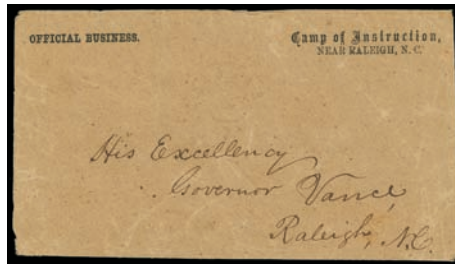 OFFICIAL BUSINESS.
Camp of Instruction,
NEAR RALEIGH, N. C.
His Excellency
Governor Vance,
Raleigh, N.C.